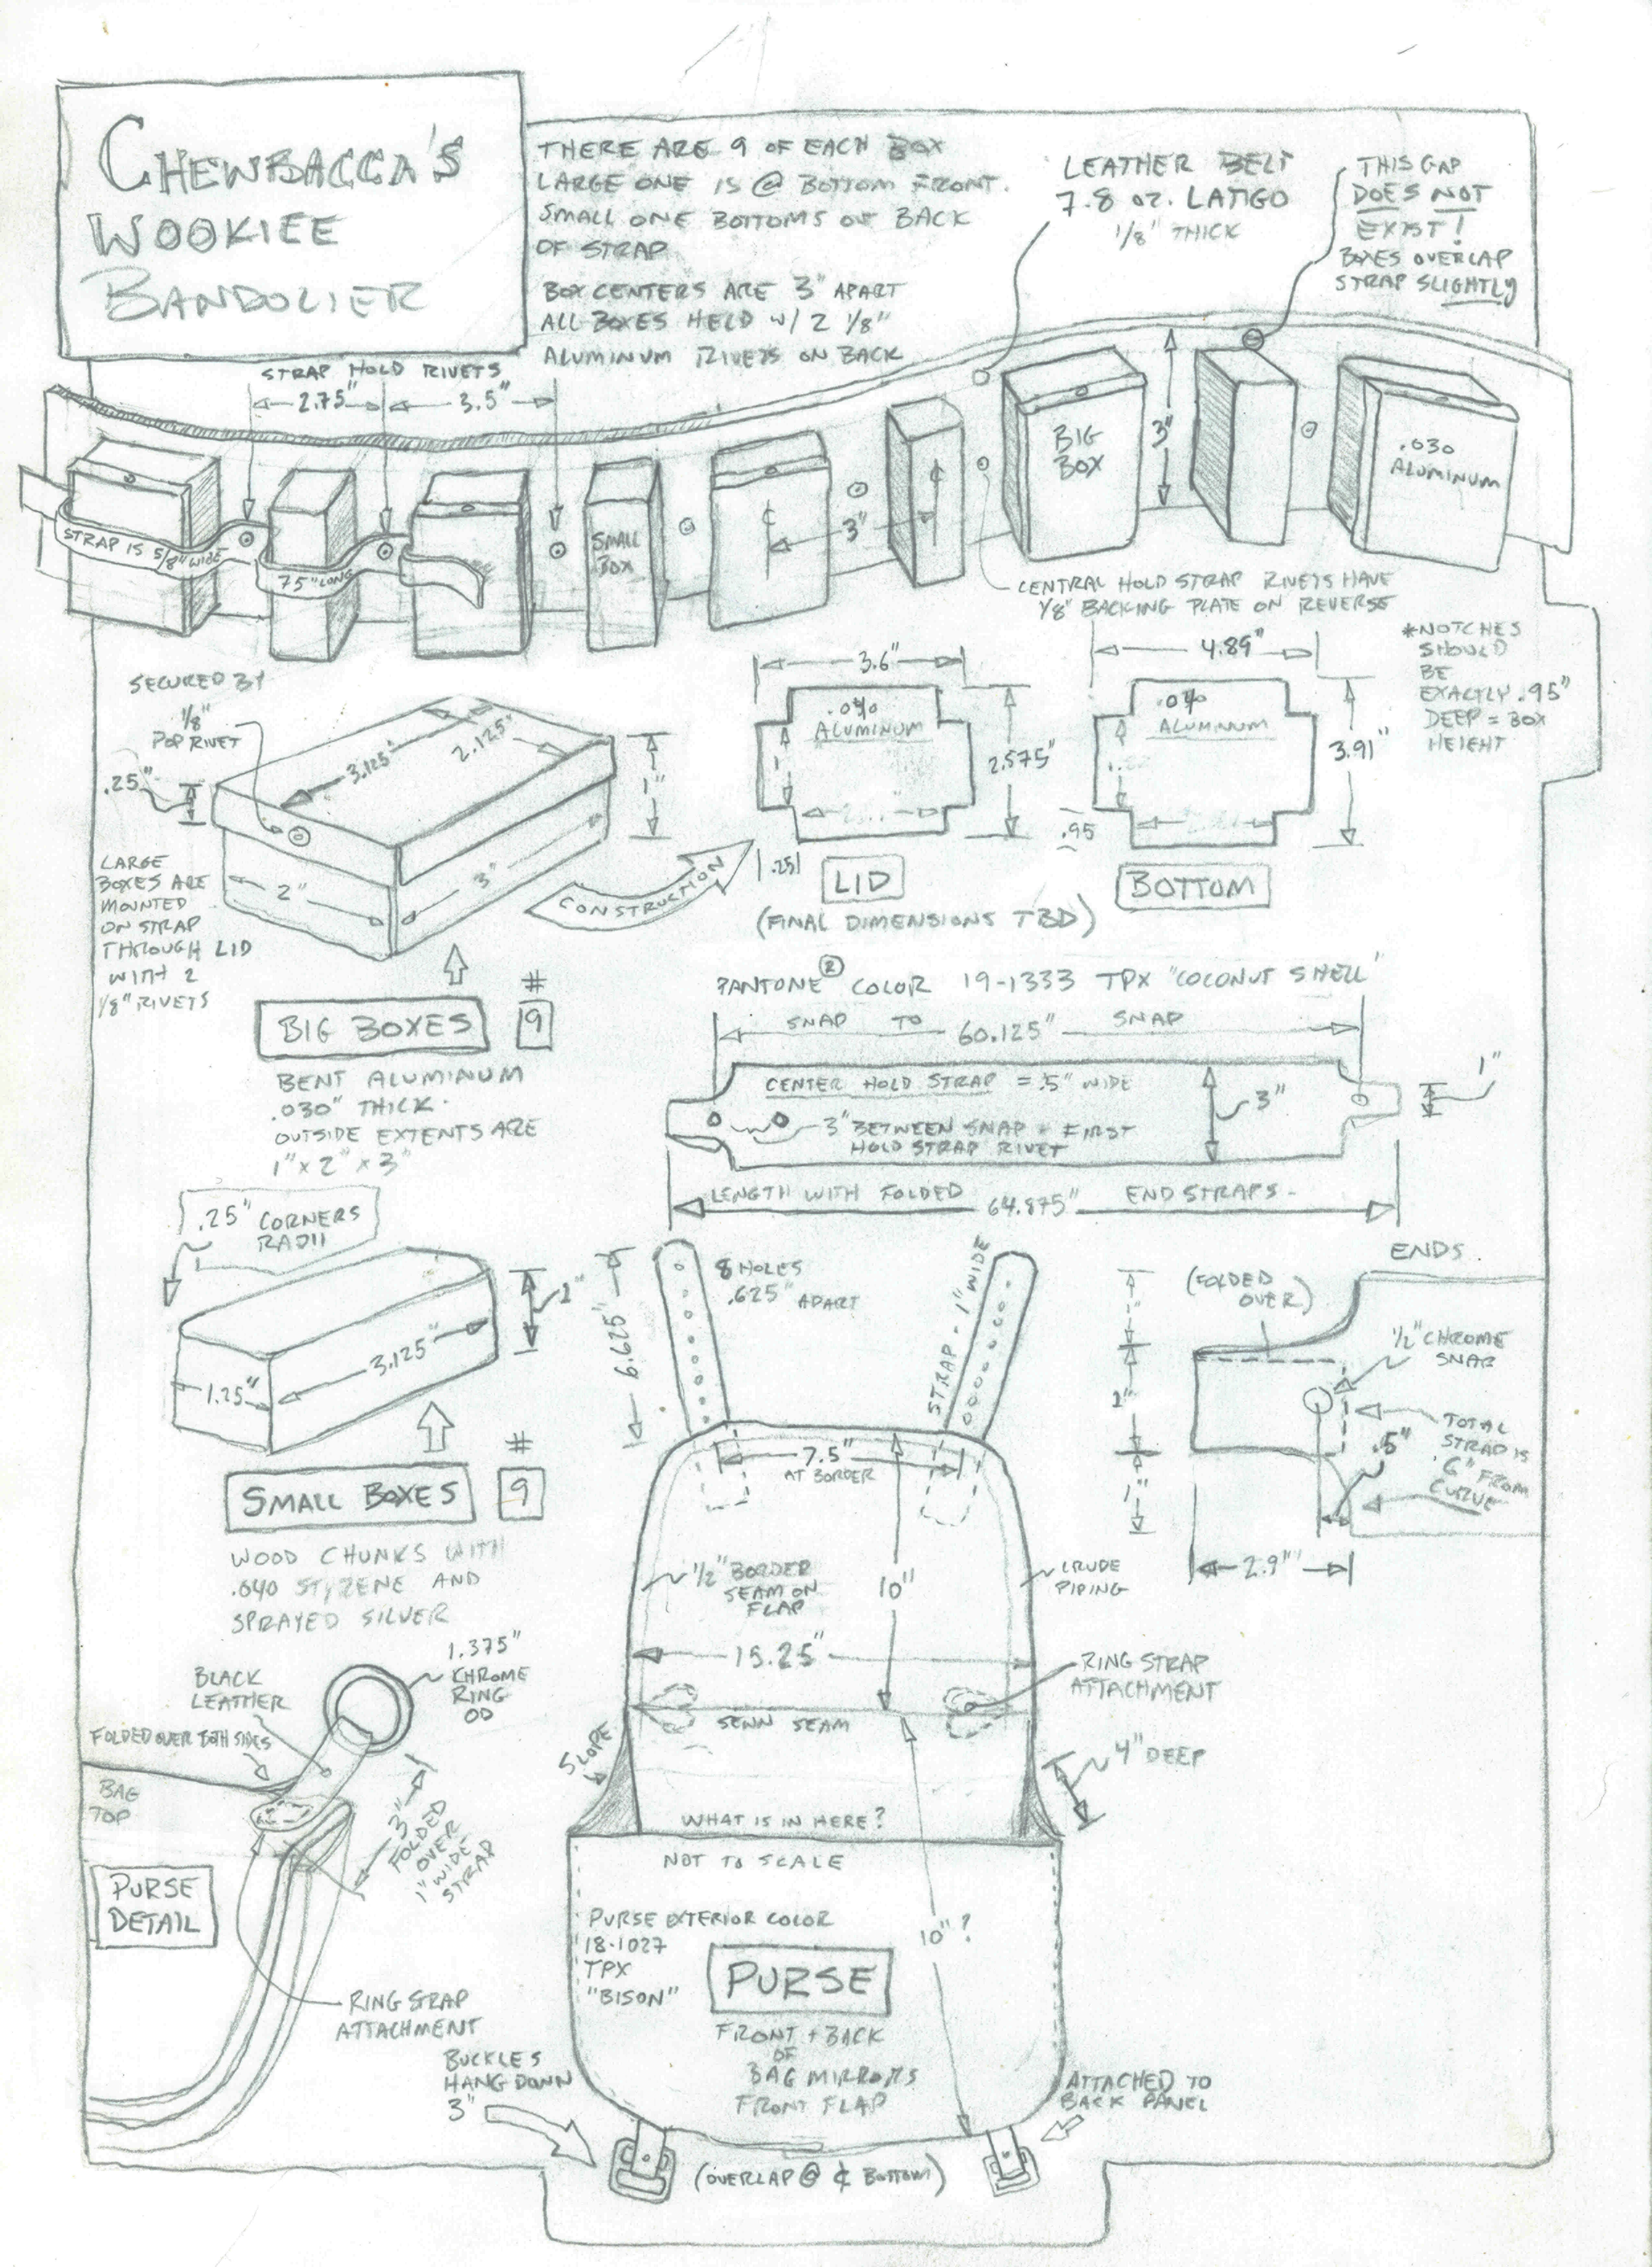 CHEWBACCA'S
WOOKIEE
BANDOLIER
THERE ARE 9 OF EACH BOX
LARGE ONE IS @ BOTTOM FRONT.
SMALL ONE BOTTOMS OF BACK
OF STRAP
BOX CENTERS ARE 3" APART
ALL BOXES HELD W/ 2 1/8"
ALUMINUM RIVETS ON BACK
LEATHER BELT
7.8 OZ. LATIGO
1/8" THICK
THIS GAP
DOES NOT
EXIST!
BOXES OVERLAP
STRAP SLIGHTLY
STRAP HOLD RIVETS
2.75"
3.5"
STRAP IS 5/8" WIDE
75" LONG
SMALL
BOX
3"
BIG
BOX
3"
.030
ALUMINUM
CENTRAL HOLD STRAP RIVETS HAVE
1/8" BACKING PLATE ON REVERSE
SECURED BY
1/8"
POP RIVET
.25"
3.125"
2.125"
1"
2"
3"
LARGE
BOXES ARE
MOUNTED
ON STRAP
THROUGH LID
WITH 2
1/8" RIVETS
CONSTRUCTION
3.6"
ALUMINUM
2.575"
.25
LID
(FINAL DIMENSIONS TBD)
4.89"
ALUMINUM
3.91"
.95
BOTTOM
*NOTCHES
SHOULD
BE
EXACTLY .95"
DEEP = BOX
HEIGHT
BIG BOXES
#
9
BENT ALUMINUM
.030" THICK.
OUTSIDE EXTENTS ARE
1" x 2" x 3"
PANTONE® COLOR 19-1333 TPX "COCONUT SHELL"
SNAP TO 60.125" SNAP
CENTER HOLD STRAP = .5" WIDE
3" BETWEEN SNAP + FIRST
HOLD STRAP RIVET
3"
1"
LENGTH WITH FOLDED 64.875" END STRAPS-
.25" CORNERS
RADII
1"
3.125"
1.25"
SMALL BOXES
#
9
WOOD CHUNKS WITH
.040 STYRENE AND
SPRAYED SILVER
6.625"
8 HOLES
.625" APART
STRAP - 1" WIDE
7.5"
AT BORDER
1/2" BORDER
SEAM ON
FLAP
10"
CRUDE
PIPING
15.25"
RING STRAP
ATTACHMENT
SEWN SEAM
SLOPE
4" DEEP
WHAT IS IN HERE?
NOT TO SCALE
PURSE EXTERIOR COLOR
18-1027
TPX
"BISON"
10"?
PURSE
FRONT + BACK
OF
BAG MIRRORS
FRONT FLAP
BUCKLES
HANG DOWN
3"
ATTACHED TO
BACK PANEL
(OVERLAP @ ¢ BOTTOM)
ENDS
(FOLDED
OVER)
1"
1"
1/2" CHROME
SNAP
TOTAL
STRAP IS
.6" FROM
CURVE
.5"
1"
2.9"
1.375"
CHROME
RING
OD
BLACK
LEATHER
FOLDED OVER BOTH SIDES
BAG
TOP
3"
FOLDED
OVER
1" WIDE
STRAP
PURSE
DETAIL
RING STRAP
ATTACHMENT